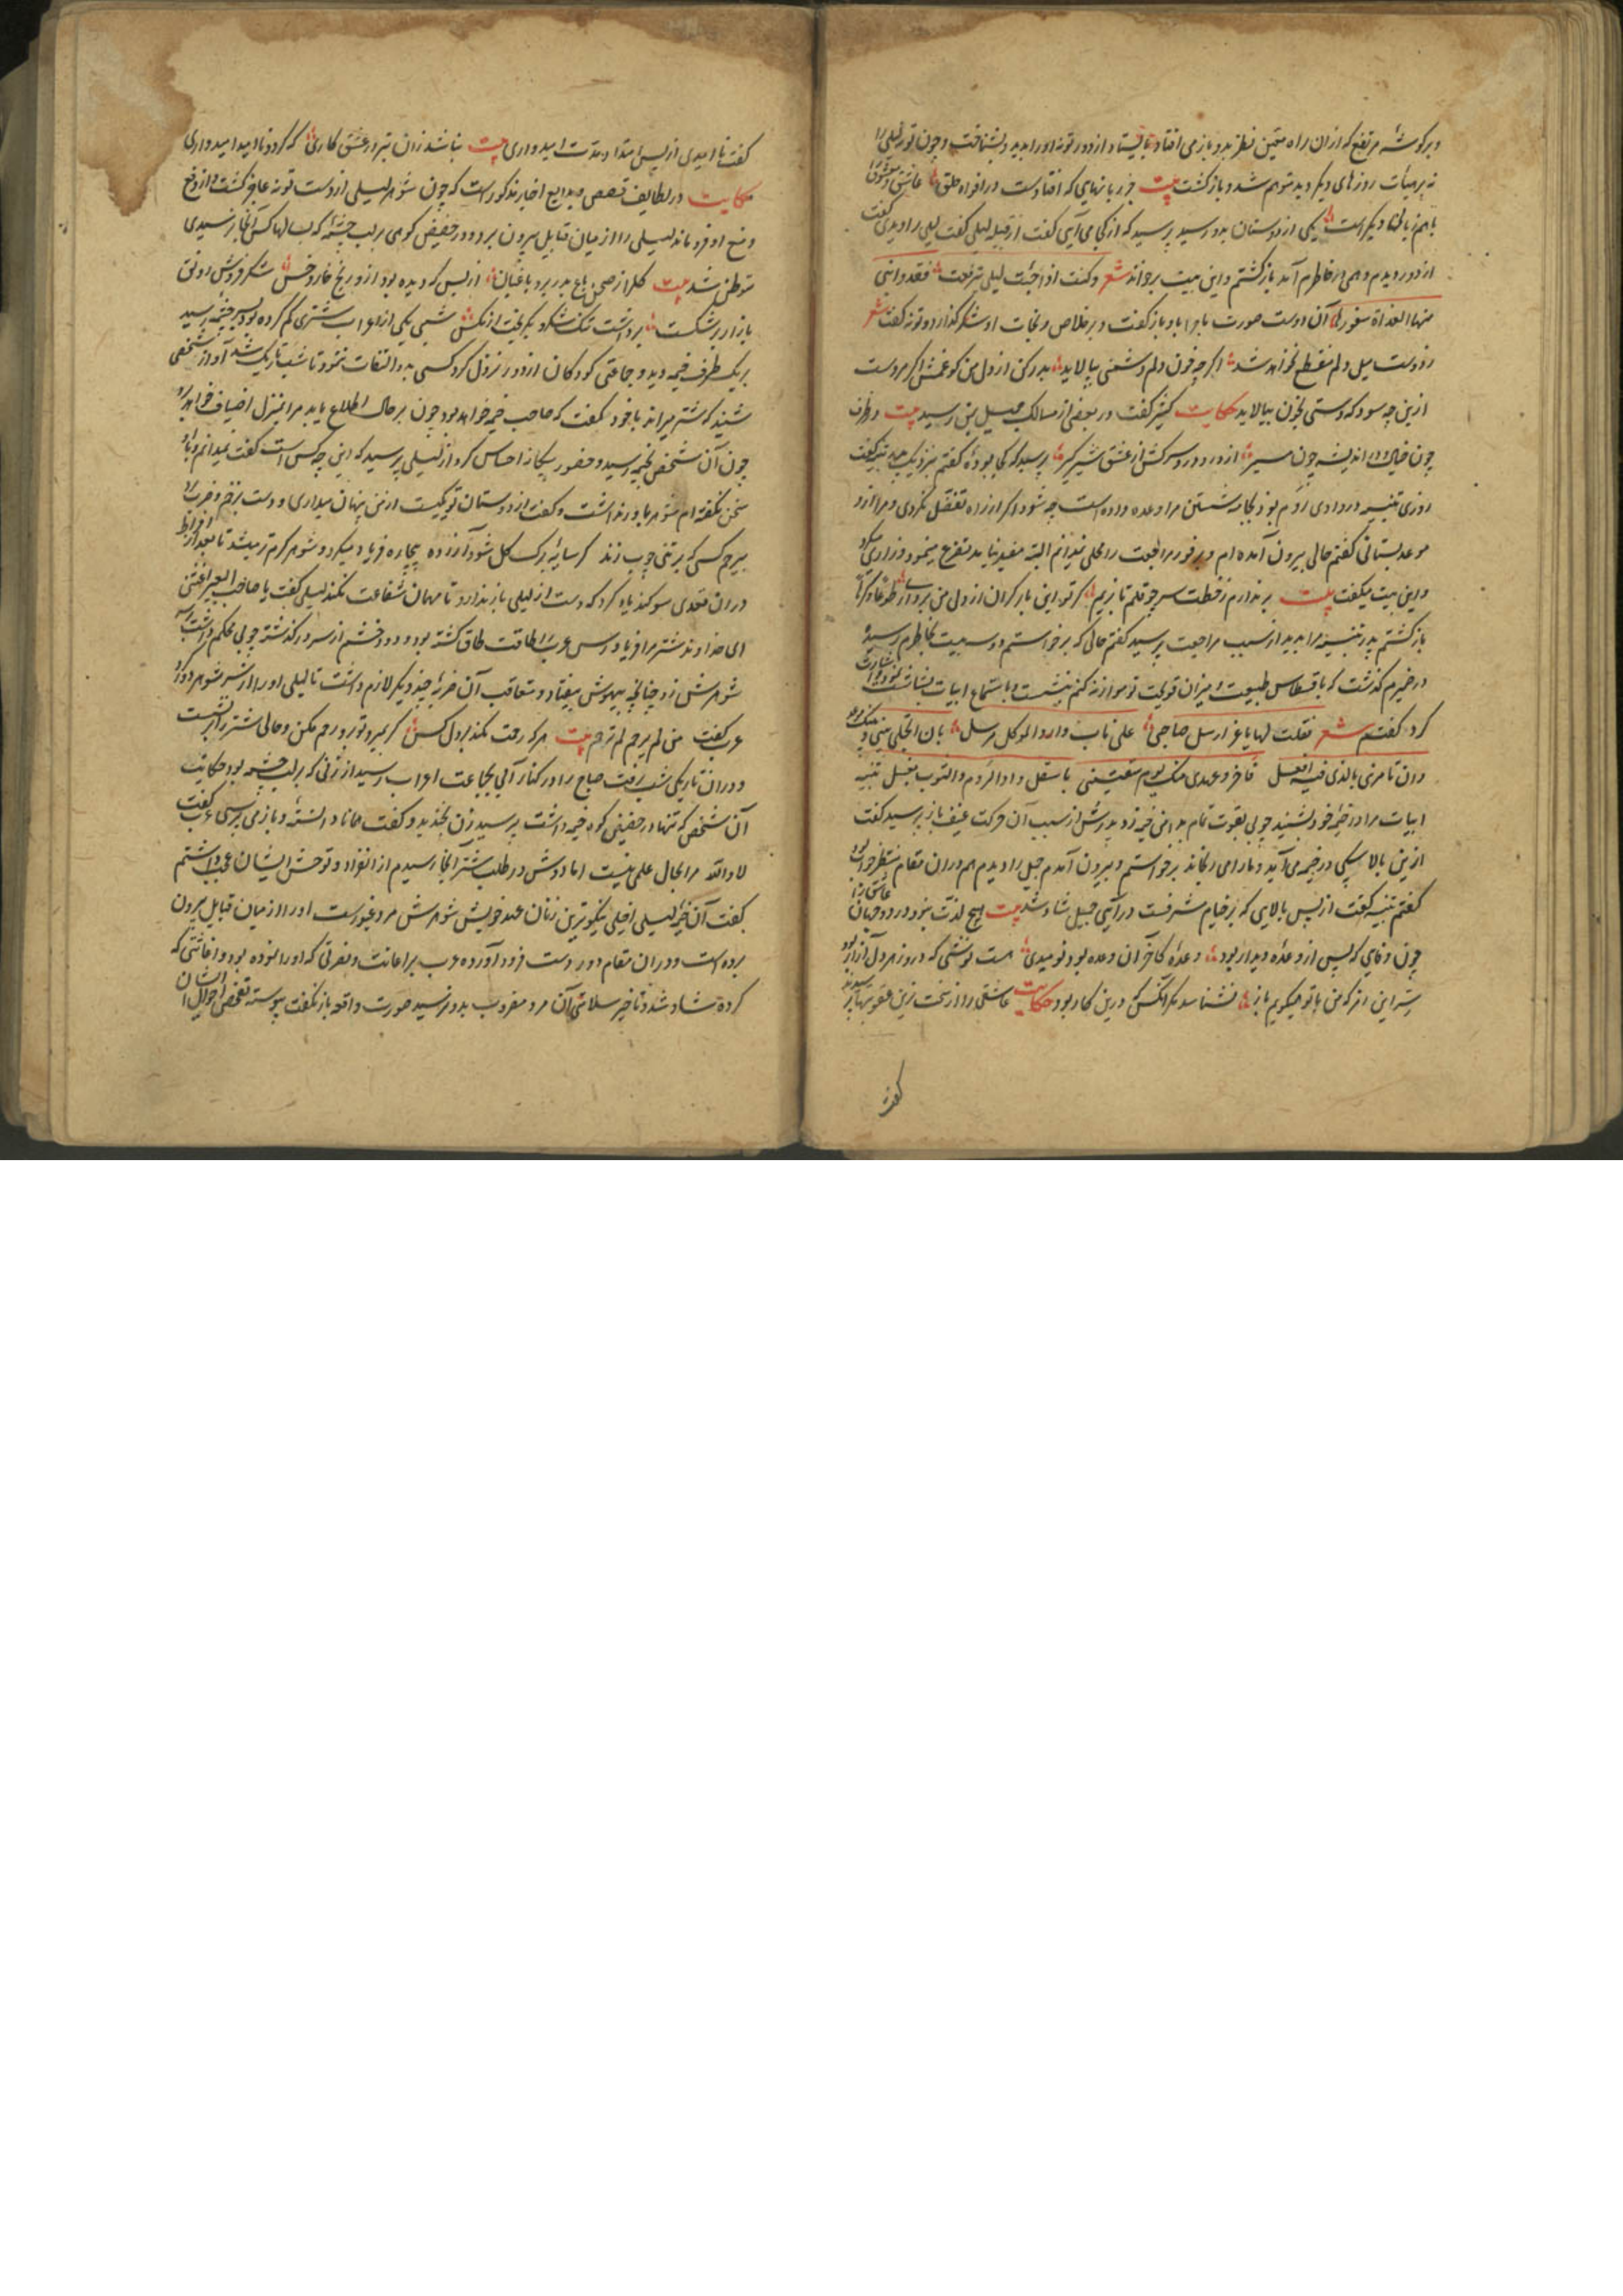 و بر گوشهٔ مرتفع که ازان راه متعین نظر بدو بازمی افتاد بایستاد و از دور توبه او را بدید و بشناخت و چون توبه لیلی را
نه بر هیأت روزهای دیگر دید متوهم شد و باز گشت بیت جز زبانهایی که افتادست در افواه خلق عاشق و معشوق را
باهم زبانها دیگرست یکی از دوستان بدو رسید پرسید که از کجا می آیی گفت از قبیله لیلی گفت لیلی را دیدی گفت
از دور دیدم وهمی در خاطرم آمد باز گشتم و این بیت برخواند شعر و کنت اذا ما جئت لیلی تبرقعت فقد رابنی
منها الغداة سفورها آن دوست صورت ماجرا باو باز گفت و بر خلاص و نجات او شکر گذارد و توبه گفت شعر
ز دوست میل دلم منقطع نخواهد شد اگر چه خون دلم دشمنی بپالاید بدر کن از دل من گو غمش اگر مردست
ازین چه سود که دستی بخون بیالاید حکایت کثیر گفت در بعضی از مسالک جمیل بمن رسید بیت در طرف
چون خیال در اندیشه چون مسیر از دور دور سرکش از عشق شیرگیر پرسید که کجا بودهٔ گفتم بنزدیک پدر بثینه گفت
روزی بثینه در وادی دوم بود بجامه شستن مرا وعده داده است چه شود اگر از راه تفضل بگردی و مرا ازو
موعد بستانی گفتم حالی بیرون آمده ام در فور مراجعت را محلی نمیدانم البته مفید نیامد تضرع مینمود و زاری میکرد
و این بیت میگفت بیت بر ندارم ز خطت سر چو قلم تا بزیم گر تو این بار گران از دل من برداری طوعا و کرها
باز گشتم پدر بثینه مرا بدید از سبب مراجعت پرسید گفتم حالی که برخواستم دو سه بیت بخاطرم رسید و
در ضمیرم گذشت که با قسطاس طبیعت و میزان قریحت تو موازنه کنم بنشست و باستماع ابیات بشاشت نمود و اشارت
کرد گفتم شعر فقلت لها یا عز ارسل صاحبی علی ناب دار والموکل مرسل بان تجعلی بینی و بینک موعدا
وان تامرنی بالذی فیه افعل فاخر عهدی منک یوم لقیتنی باسفل وادی الدوم والثوب یغسل بثینه
ابیات مرا در خیمه خود بشنید چوبی بقوت تمام بدامن خیمه زد پدرش از سبب آن حرکت عنیف باز پرسید گفت
ازین بالا سگی در خیمه می آید و ما را می رنجاند برخواستم و بیرون آمدم جمیل را دیدم هم دران مقام منتظر جواب بود
گفتم بثینه گفت از پس بالایی که بر خیام مشرفست در آیی جمیل شاد شد بیت هیچ لذت نبود در دو جهان عاشق را
چون وفایی که پس از وعدهٔ دیدار بود وعدهٔ کاخر آن وعده بود نومیدی هست نوشی که درو زهر دل آزار بود
سرّ این رمز که من با تو همیگویم باز نشناسد مگر آنکس که درین کار بود حکایت عاشقی را از سخت ترین عقوبتها پرسیدند
گفت
گفت نا امیدی از پس امتداد مدت امیدواری بیت نباشد زان بتر در عشق کاری که گردد نا امید امیدواری
حکایت در لطایف قصص و بدایع اخبار مذکور است که چون شوهر لیلی از دست توبه عاجز گشت و از دفع
و منع او فرو ماند لیلی را از میان قبایل بیرون برد و در حضیض کوهی بر لب چشمهٔ که بسالها کس آنجا نرسیدی
متوطن شد بیت گل را ز صحن باغ بدر برد باغبان از بس که دیده بود ازو رنج خار و خس شکر فروش رونق
بازار بر شکست برداشت تنگ شکر و بگریخت از مگس شبی یکی از اعراب شتری گم کرده بود بر سر چشمه رسید
بر یک طرف خیمه دید و جماعتی کودکان از دور نزول کرد کسی بدو التفات ننمود تا شب تاریک شد آواز شخصی
شنید که شتر میراند با خود گفت که صاحب خیمه خواهد بود چون بر حال اطلاع یابد مرا بمنزل اضیاف خواهد برد
چون آن شخص بخیمه رسید و حضور بیگانه احساس کرد از لیلی پرسید که این چه کس است گفت نمیدانم و با او
سخن نگفته ام شوهر باور نداشت و گفت از دوستان تو یکیست از من پنهان میداری و دست بزخم و ضرب برد
بیرحم کسی که بر تنی چوب زند کز سایهٔ برگ گل شود آزرده بیچاره فریاد میکرد و شوهر گرم تر میشد تا بعد از افراط
دران تعدی سوگند یاد کرد که دست از لیلی باز ندارد تا مهمان شفاعت نکند لیلی گفت یا صاحب البعیر اغثنی
ای خداوند شتر مرا فریاد رس عرب را طاقت طاق گشته بود و دود خشم از سر در گذشته چوبی محکم داشت بر سر
شوهرش زد چنانچه بیهوش بیفتاد و متعاقب آن ضربهٔ چند دیگر لازم داشت تا لیلی او را از سر شوهر دور کرد
عرب گفت من لم یرحم لم یرحم بیت هر که رحمت نکند بر دل کس گر بمیرد تو برو رحم مکن و حالی شتر را بنشست
و دران تاریکی شب برفت صباح را در کنار آبی بجماعت اعراب رسید از زنی که بر لب چشمه بود حکایت
آن شخص که تنها در حضیض کوه خیمه داشت پرسید زن بخندید و گفت همانا دانسته و باز می پرسی عرب گفت
لا والله مرا بحال علمی نیست اما دوش در طلب شتر آنجا رسیدم از انفراد و توحش ایشان عجب داشتم
گفت آن خیمهٔ لیلی اخیلی نیکوترین زنان عهد خویش شوهرش مرد غیورست او را از میان قبایل بیرون
برده است و دران مقام دور دست فرود آورده عرب بر اعانت و نصرتی که او را نموده بود و اغاثتی که
کرده شاد شد و تا خبر سلامتی آن مرد مضروب بدو نرسید صورت واقعه باز نگفت پیوسته تفحص احوال ایشان